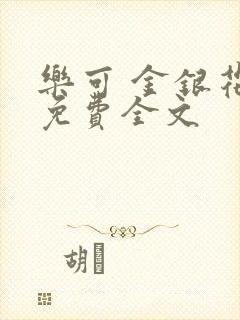 樂可 金銀花
免費全文
胡